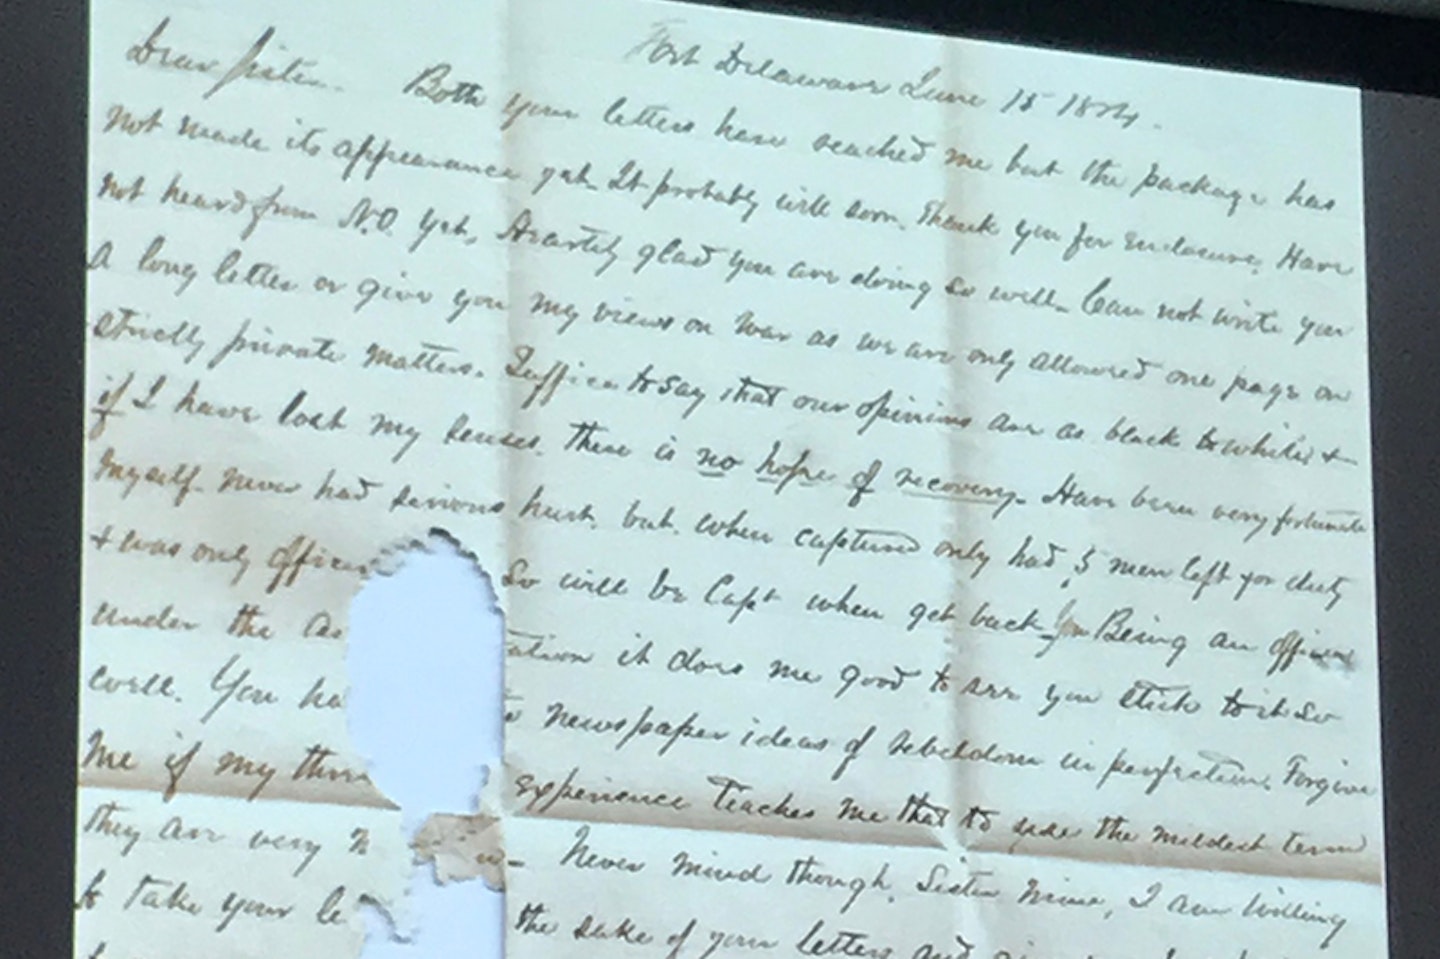 Fort Delaware June 15 1864.
Dear Sister. Both your letters have reached me but the package has
not made its appearance yet. It probably will soon. Thank you for enclosure. Have
not heard from N.O. yet. Heartily glad you are doing so well. Can not write you
a long letter or give you my views on war as we are only allowed one page on
strictly private matters. Suffice to say that our opinions are as black to white &
if I have lost my senses. there is no hope of recovery. Have been very fortunate
myself. never had serious hurt, but, when captured only had 5 men left for duty
& was only officer So will be Capt when get back. Being an officer
under the as ation it does me good to see you stick to it so
well. You ha newspaper ideas of rebeldom in perfection. Forgive
me if my thr experience teaches me that to use the mildest term
they are very Never mind though, Sister mine, I am willing
to take your le the sake of your letters and